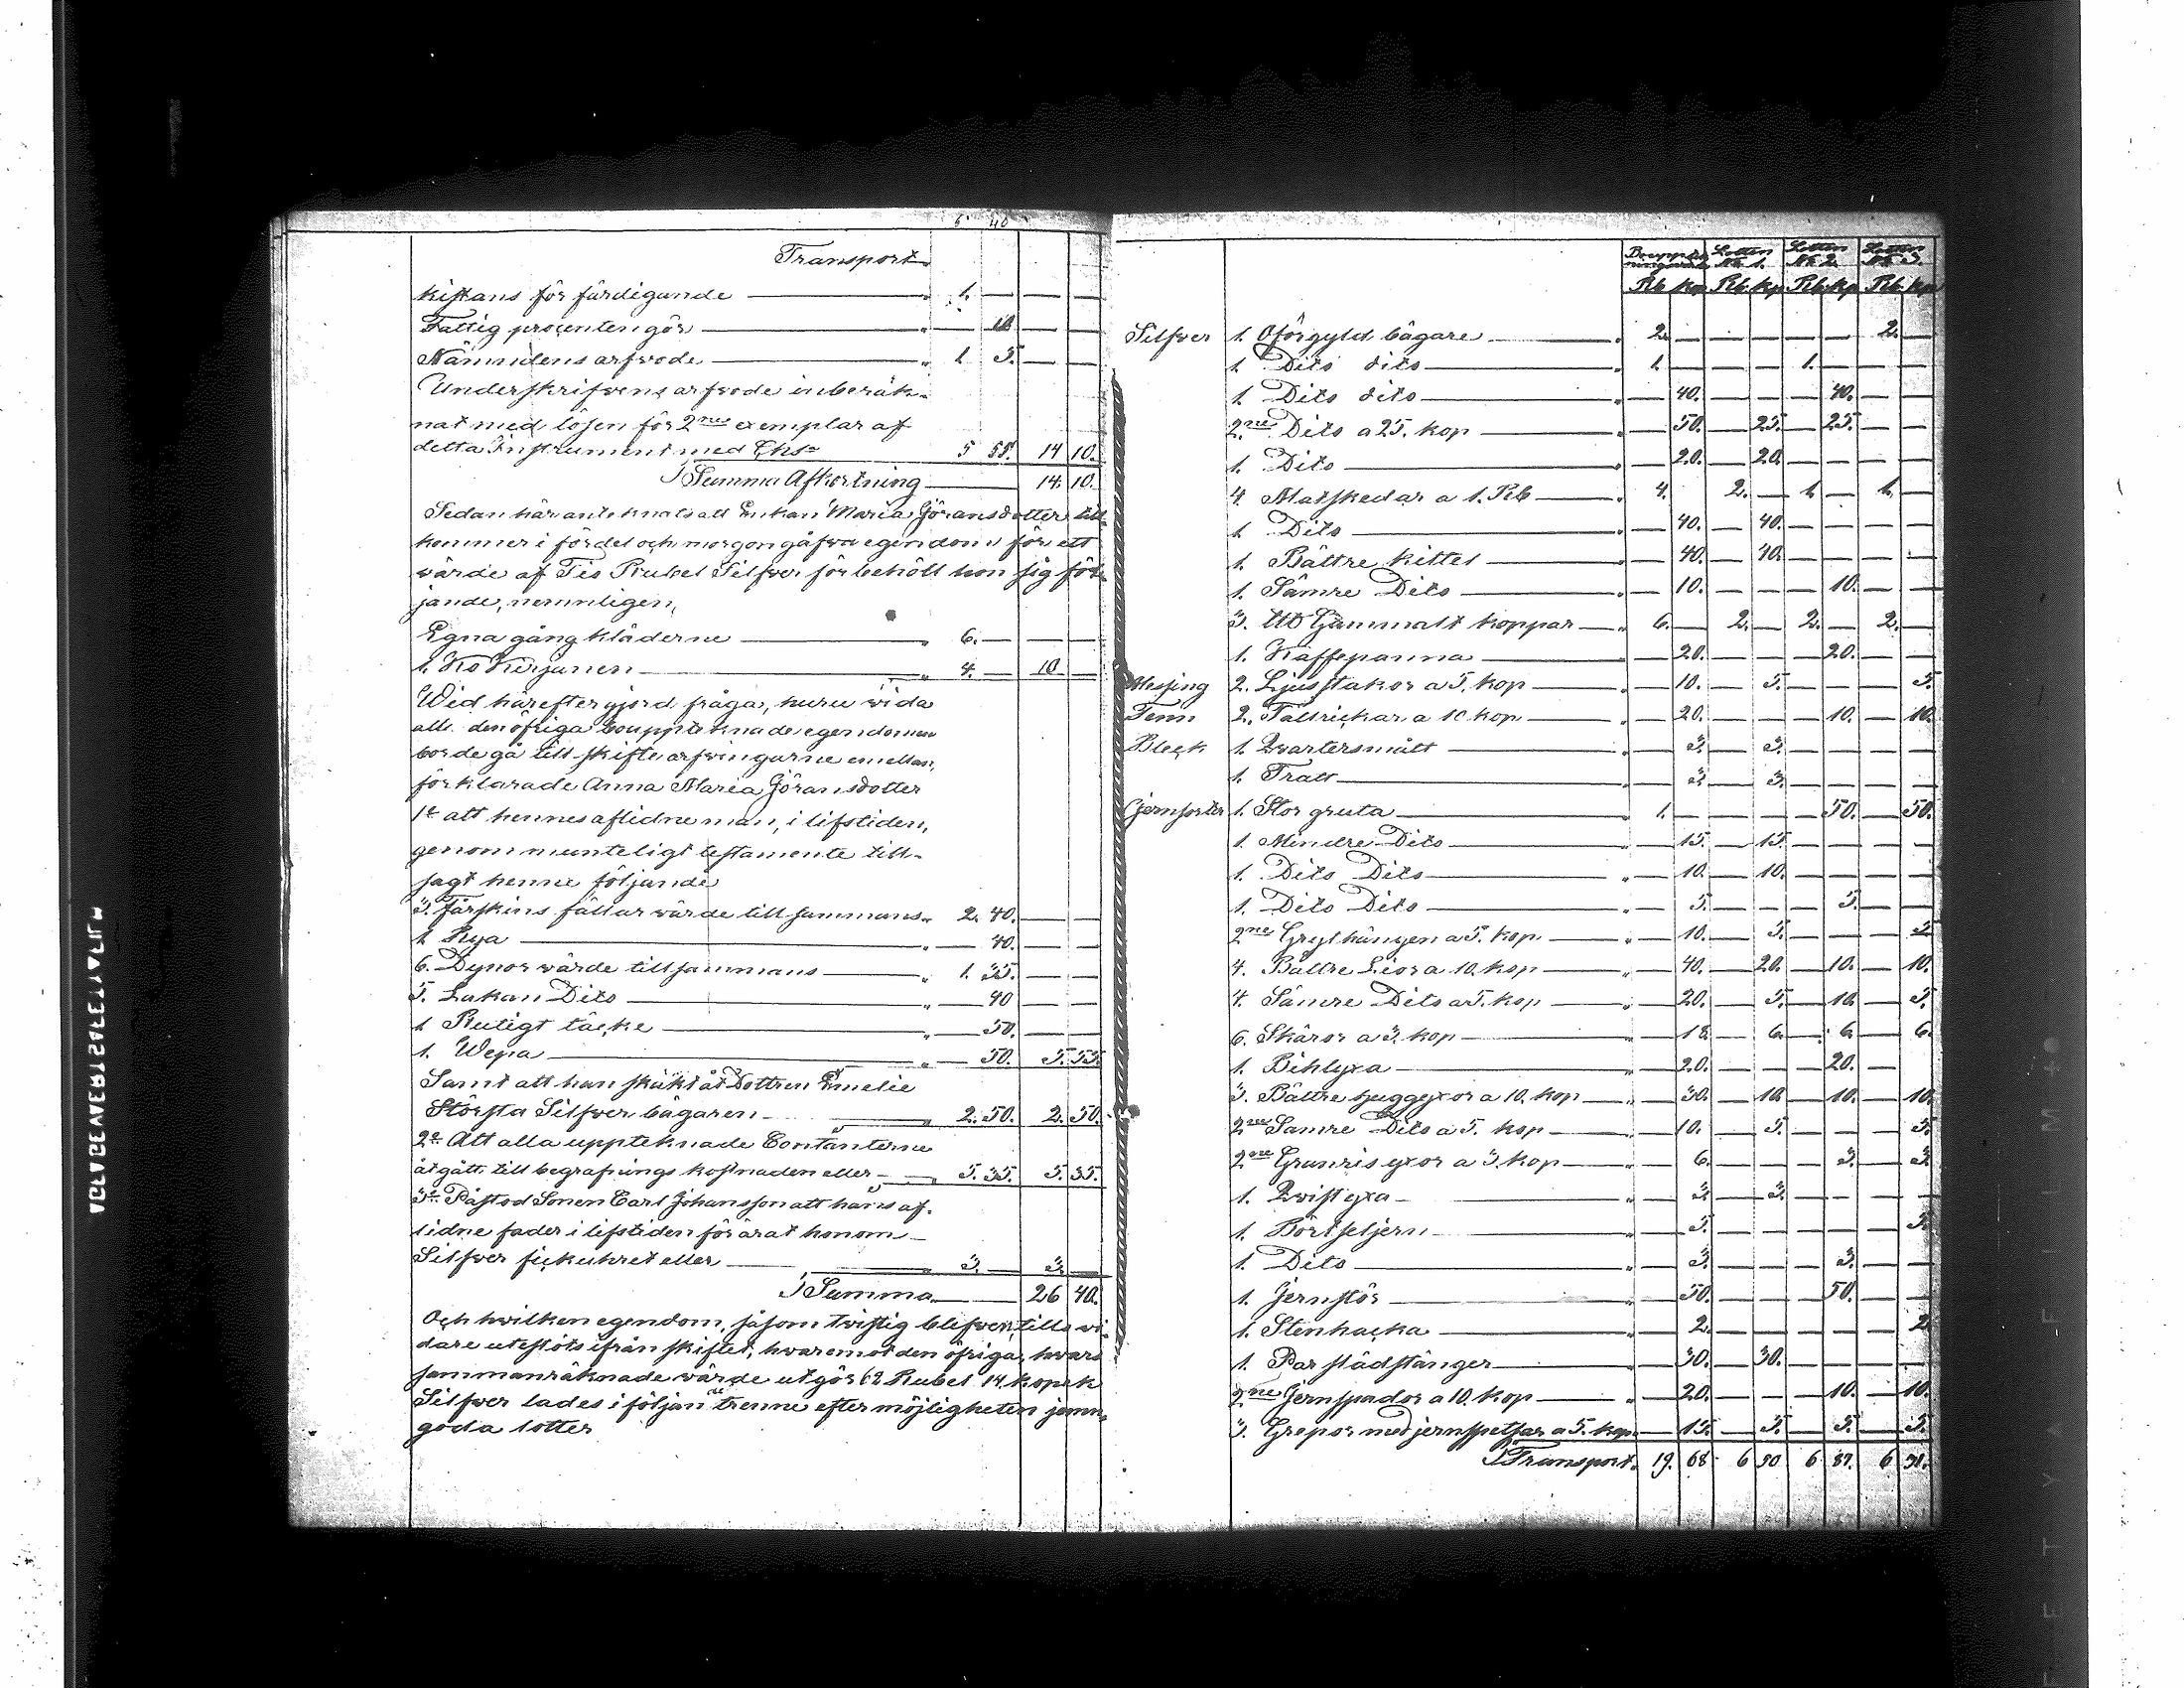 6 40
Transport
kistans för färdigande — " 1. — — —
Fattig procenten gör — " — 18 — —
Nämndens arfvode — " 1. 5. — —
Underskrifvens arfvode inberäk-
nat med lösen för 2ne exemplar af
detta Instrument med Chs 5 55. 14 10.
Summa Afkortning — 14. 10.
Sedan här anteknats att Enkan Maria Göransdotter till-
kommer i fördel och morgongåfva egendom för ett
värde af Tio Rubel Silfver förbehöll hon sig föl-
jande, nemnligen,
Egna gångkläderne — " 6. — — —
1. Ko Kirjanen — " 4. — 10 —
Wid härefter gjord fråga, huru vida
all den öfriga bouppteknade egendomen
borde gå till skifte arfvingarne emellan,
förklarade Anna Maria Göransdotter
1o att hennes aflidne man, i lifstiden,
genom munteligt testamente till-
sagt henne följande
3. Fårskins fällar wärde tillsammans " 2. 40. — —
1. Rya — " — 40. — —
6. Dynor wärde tillsammans — " 1. 35. — —
5. Lakan Dito — " — 40 — —
1 Rutigt täcke — " — 50. — —
1. Wepa — " — 50. 5. 55.
Samt att han skänkt åt Dottren Emelie
Största Silfver bägaren — " 2. 50. 2. 50.
2o Att alla uppteknade Contanterne
åtgått till begrafnings kostnaden eller — " 5. 35. 5. 35.
3o Påstod Sonen Carl Johansson att hans af-
lidne fader i lifstiden förärat honom
Silfver fickuhret eller — " 3. — 3. —
Summa — 26 40.
Och hwilken egendom, såsom twistig blefven, tills vi-
dare uteslöts ifrån skiftet, hwaremot den öfriga, hwars
sammanräknade wärde utgör 62 Rubel 14 kopek
Silfver lades i följande trenne efter möjligheten jemn-
goda lotter
Lotten No 1. Lotten No 2. Lotten No 3.
Rb. Kp. Rb. Kp. Rb. Kp. Rb. Kp.
Silfver 1. Oförgyld bägare — " 2. — — — — — 2. —
1. Dito dito — " 1. — — — 1. — — —
1. Dito dito — " — 40. — — — 40. — —
2ne Dito a 25. kop — " — 50. — 25. — 25. — —
1. Dito — " — 20. — 20. — — — —
4. Matskedar a 1. Rb — " 4. 2. — 1. — 1. —
1 Dito — " — 40. — 40. — — — —
1. Bättre kittel — " — 40. — 40. — — — —
1. Sämre Dito — " — 10. — — — 10. — —
3. Gammalt koppar — " 6. — 2. — 2. — 2. —
1. Kaffepanna — " — 20. — — — 20. — —
Messing 2. Ljusstakor a 5. kop — " — 10. — 5. — — — 5.
Tenn 2. Tallrickar a 10 kop — " — 20. — — — 10. — 10.
Bleck 1. Qvartersmått — " — 3. — 3. — — — —
1. Tratt — " — 3. — 3. — — — —
Jernsorter 1. Stor gruta — " 1. — — — — 50. — 50.
1. Mindre Dito — " — 15. — 15. — — — —
1. Dito Dito — " — 10. — 10. — — — —
1. Dito Dito — " — 5. — — — 5. — —
2ne a 5. kop — " — 10. — 5. — — — 5
4. Bättre Lior a 10. kop — " — 40. — 20. — 10. — 10.
4. Sämre Dito a 5. kop — " — 20. — 5. — 10. — 5.
6. Skäror a 3. kop — " — 18. — 6. — 6. — 6.
1. Bihlyxa — " — 20. — — — 20. —
3. Bättre huggyxor a 10. kop — " — 30. — 10. — 10. — 10.
2ne Sämre Dito a 5. kop — " — 10. — 5. — — — 5
2ne Granris yxor a 3. kop — " — 6. — — — 3. — 3
1. Qvistyxa — " — 3. — 3. — — — —
1. — " — 5. — — — — — 5.
1. Dito — " — 3. — — — 3. — —
1. Jernstör — " — 50. — — — 50. — —
1. Stenhacka — " — 2. — — — — — 2
1. Par städstänger — " — 30. — 30. — — — —
2ne Jernspador a 10. kop — " — 20. — — — 10. — 10.
3. Grepor med jernspetsar a 5. kop — 15. — 5. — 5. — 5.
Transport. 19. 68. 6 50 6 87. 6